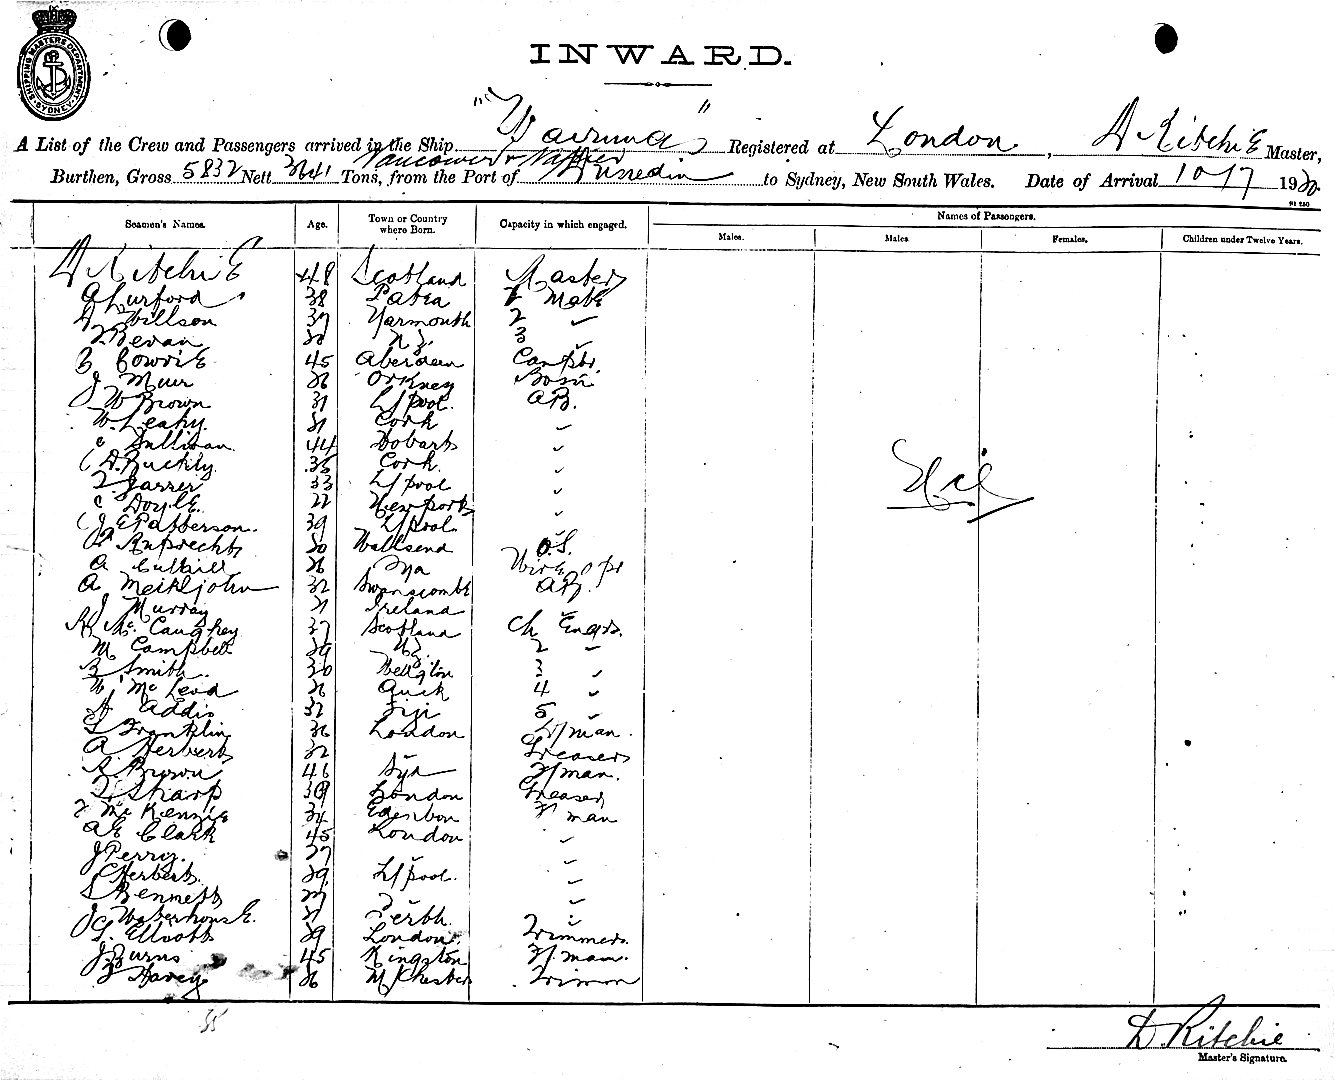 SHIPPING MASTERS DEPARTMENT SYDNEY
INWARD.
A List of the Crew and Passengers arrived in the Ship "Wairuna" Registered at London, D Ritchie Master,
Vancouver & Napier
Burthen, Gross 5832 Nett Tons, from the Port of Dunedin to Sydney, New South Wales. Date of Arrival 10/7 1920.
Names of Passengers.
Seamen's Names. Age. Town or Country where Born. Capacity in which engaged. Males. Males Females. Children under Twelve Years.
D Ritchie 48 Scotland Master
A Lurford 38 Patea 1 Mate
Willson 37 Yarmouth 2 "
Bevan N Z. 3 "
Bowrie 45 Aberdeen Carptr.
J Muir 26 Orkney Bosn
W Brown 31 L/pool. AB.
W Leahy Cork "
C Sullivan 44 Hobart "
D. Buckly 35 Cork "
33 L/pool "
C Doyle 22 Newport "
J E Patterson. 39 L/pool. "
Ruprecht 20 Wallsend O.S.
A 26
A Meikljohn 32 Swanscombe AB.
J Murray 21 Ireland
Mc Caughey 37 Scotland Ch Engr.
M Campbell 29 N Z. 2 "
Smith 30 Wellgton 3 "
W McLeod 26 4 "
Addis 32 Fiji 5 "
Franklin 36 London
A Herbert 32 " Greaser
Brown 46 Syd F/man.
Sharp 39 London Greaser
McKenzie 34 F man
A E Clark 45 London "
J Perry. 27 " "
Herbert 29 L/pool. "
Bennett 27 " "
J Waterhouse. Perth. "
Elliott 29 London. Trimmer.
J Burns 45 Kingston F/man.
Harvey 26 M/Chester Trimm
Nil
35
D. Ritchie
Master's Signature.